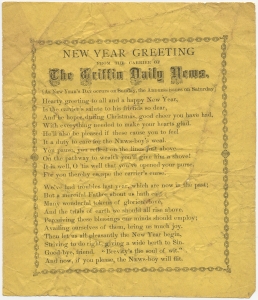 NEW YEAR GREETING
FROM THE CARRIER OF
The Griffin Daily News.
New Year's Day occurs on Sunday, the Address issues on Saturday
Hearty greeting to all and a happy New Year,
Is the carrier's salute to his friends so dear,
And he hopes during Christmas, good cheer you have had,
With everything needed to make your hearts glad.
He'd also be pleased if those came you to feel
It a duty to care for the News-boy's soul.
On the pathway to wealth you'd give him a shove!
It is well, O 'tis well that you've opened your purse,
For you thereby escape the carrier's curse.
We've had troubles last year, which are now in the past;
But a merciful Father about us hath cast
Many wonderful tokens of glorious love,
And the trials of earth we should all rise above.
Perusing these blessings our minds should employ;
Availing ourselves of them, bring us much joy.
Then let us all pleasantly the New Year begin,
Starting to do right, giving a wide berth to Sin.
Good-bye, friend. "Brevity's the soul of wit."
And now, if you please, the News-boy will flit.